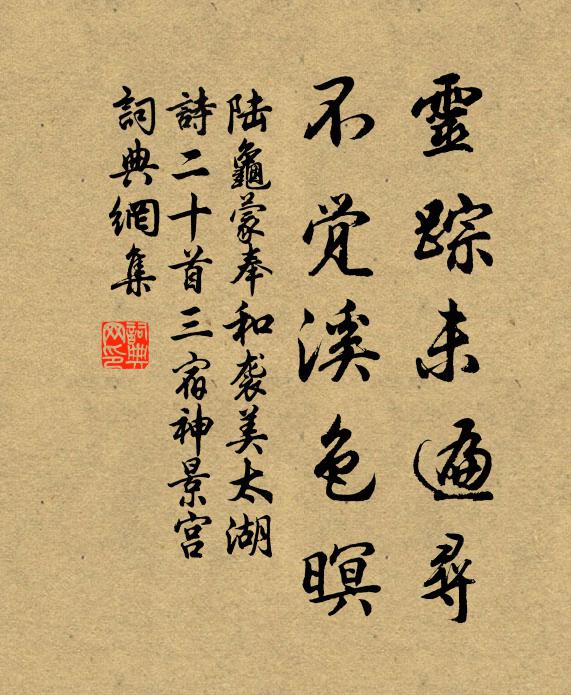 靈踪未遍尋
不觉溪色暝
陆龜蒙奉和袭美太湖
詩二十首三宿神景宫
詞典網集
詞典网印